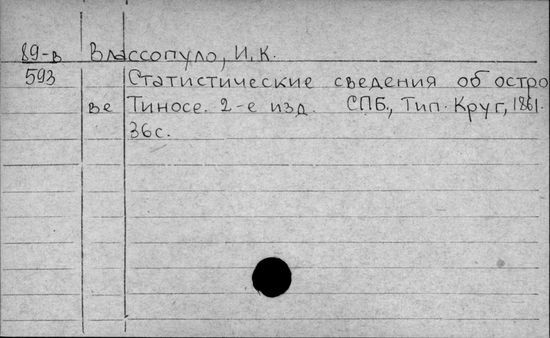 89-в Влассопуло, И.К.
593 Статистические сведения об остро
ве Тиносе. 2-е изд. СПБ., Тип. Круг, 1861.
36с.